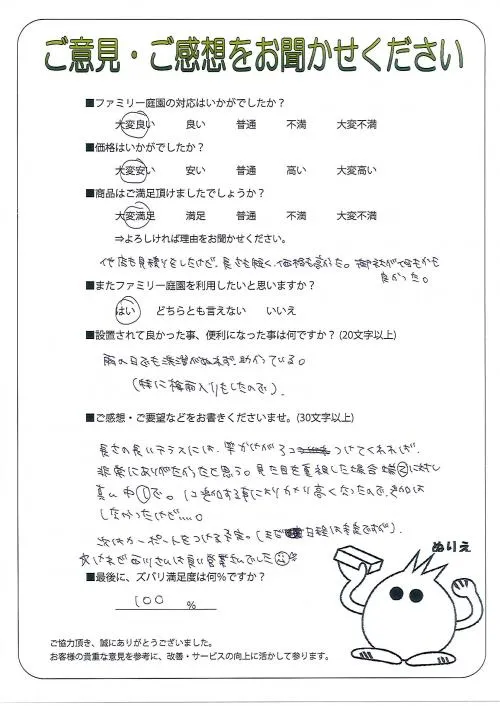 ご意見・ご感想をお聞かせください
■ファミリー庭園の対応はいかがでしたか？
大変良い 良い 普通 不満 大変不満
■価格はいかがでしたか？
大変安い 安い 普通 高い 大変高い
■商品はご満足頂けましたでしょうか？
大変満足 満足 普通 不満 大変不満
⇒よろしければ理由をお聞かせください。
他店も見積りをしたけど、長さも短く、価格も高かった。御社が何もかも
良かった。
■またファミリー庭園を利用したいと思いますか？
はい どちらとも言えない いいえ
■設置されて良かった事、便利になった事は何ですか？(20文字以上)
雨の日でも洗濯がぬれず、助かっている。
(特に梅雨入りもしたので)。
■ご感想・ご要望などをお書きくださいませ。(30文字以上)
長さの長いテラスには、竿かけが3コ つけてくれれば
非常にありがたかったと思う。見た目を重視した場合端②に対し
真ん中①で。1コ追加する事によりかなり高くなったので、追加は
しなかったけど…。
次はカーポートをつける予定。(まだ 日程は未定ですが)。
西川さんは良い営業さんでした
ぬりえ
■最後に、ズバリ満足度は何％ですか？
100 %
ご協力頂き、誠にありがとうございました。
お客様の貴重な意見を参考に、改善・サービスの向上に活かして参ります。